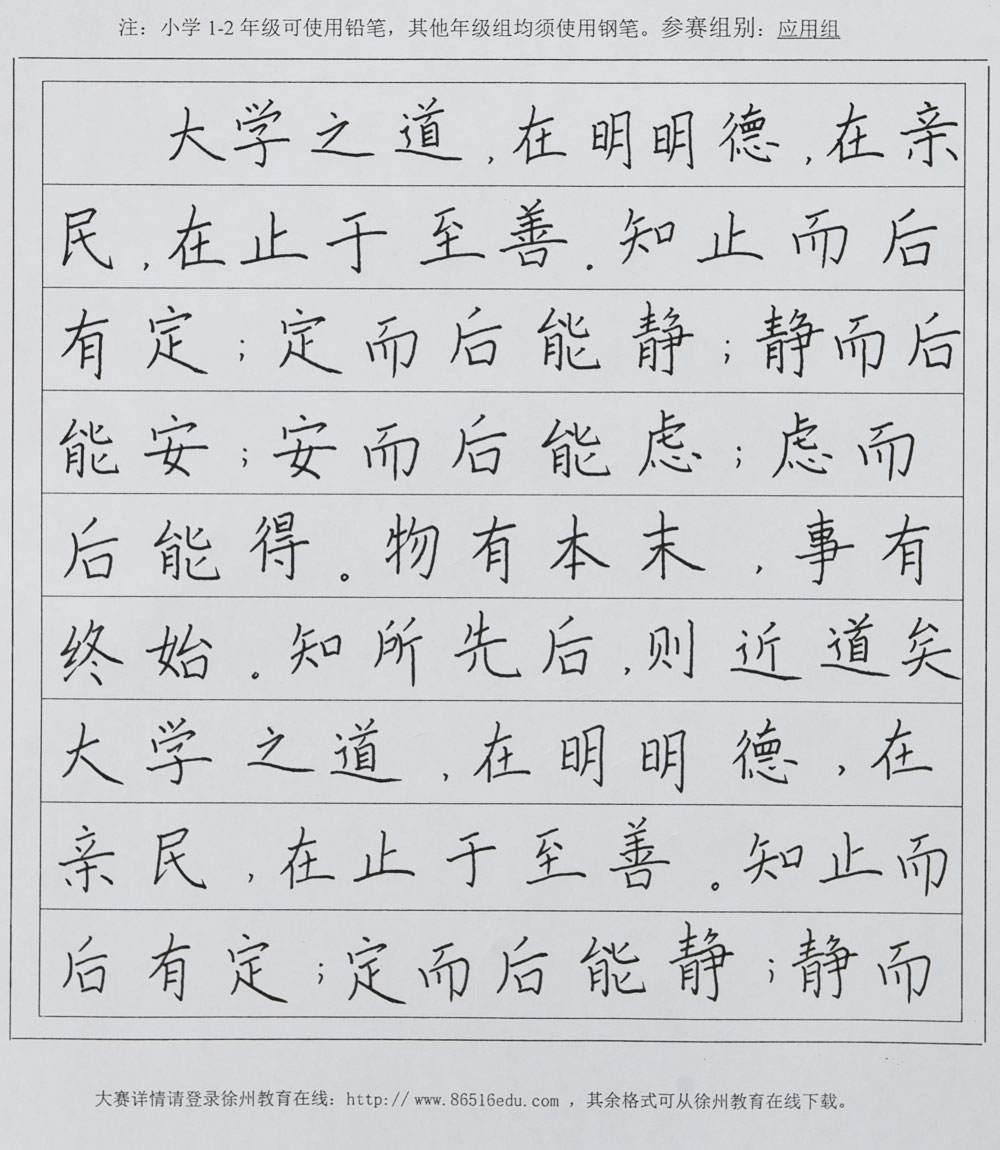 注：小学 1-2 年级可使用铅笔，其他年级组均须使用钢笔。参赛组别：应用组
大学之道，在明明德，在亲
民，在止于至善。知止而后
有定；定而后能静；静而后
能安；安而后能虑；虑而
后能得。物有本末，事有
终始。知所先后，则近道矣
大学之道，在明明德，在
亲民，在止于至善。知止而
后有定；定而后能静；静而
大赛详情请登录徐州教育在线：http:// www.86516edu.com ，其余格式可从徐州教育在线下载。